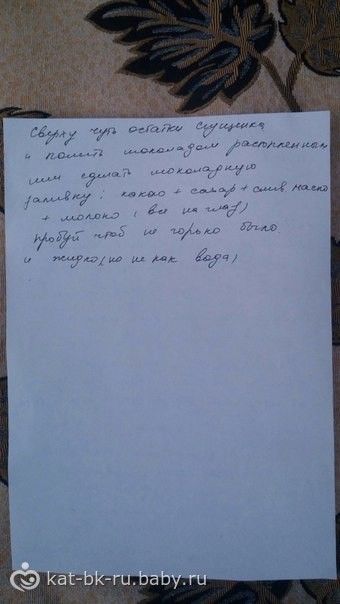 Сверху чуть остатки сгущенка
и полить шоколадом растопленным
или сделать шоколадную
заливку: какао + сахар + слив. масло
+ молоко (все на глаз)
пробуй чтоб не горько было.
и жидко (но не как вода)
kat-bk-ru.baby.ru